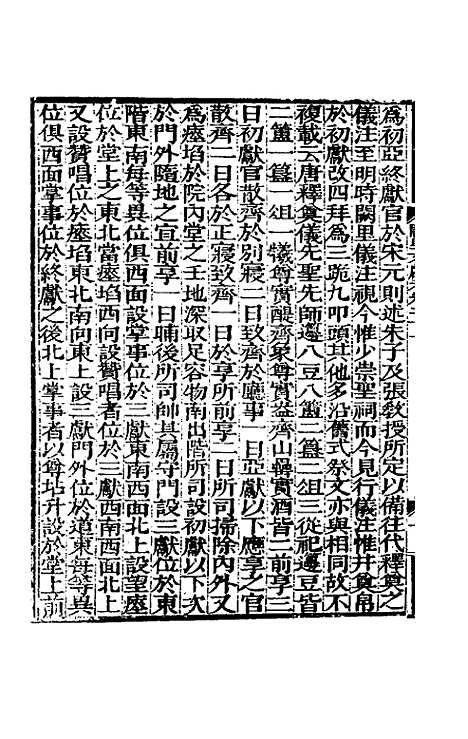 爲初亞終獻官於宋元則述朱子及張敎授所定以備往代釋奠之
儀注至明時闕里儀注視今惟少崇聖祠而今見行儀注惟井奠帛
於初獻改四拜爲三跪九叩頭其他多沿舊式祭文亦與相同故不
複載云唐釋奠儀先聖先師籩八豆八簋二簠二俎三從祀籩豆皆
二簋一簠一俎一犧尊實醍齊象尊實盎齊山罍實酒皆二前享三
日初獻官散齊於別寢二日致齊於廳事一日亞獻以下應享之官
散齊二日各於正寢致齊一日於享所前享一日所司掃除內外又
爲瘞埳於院內堂之壬地深取足容物南出階所司設初獻以下次
於門外隨地之宜前享一日晡後所司帥其屬守門設三獻位於東
階東南每等異位俱西面設掌事位於三獻東南西面北上設望瘞
位於堂上之東北當瘞埳西向設贊唱者位於三獻西南西面北上
又設贊唱位於瘞埳東北南向東上設三獻門外位於道東每等異
位俱西面掌事位於終獻之後北上掌事者以尊坫升設於堂上前